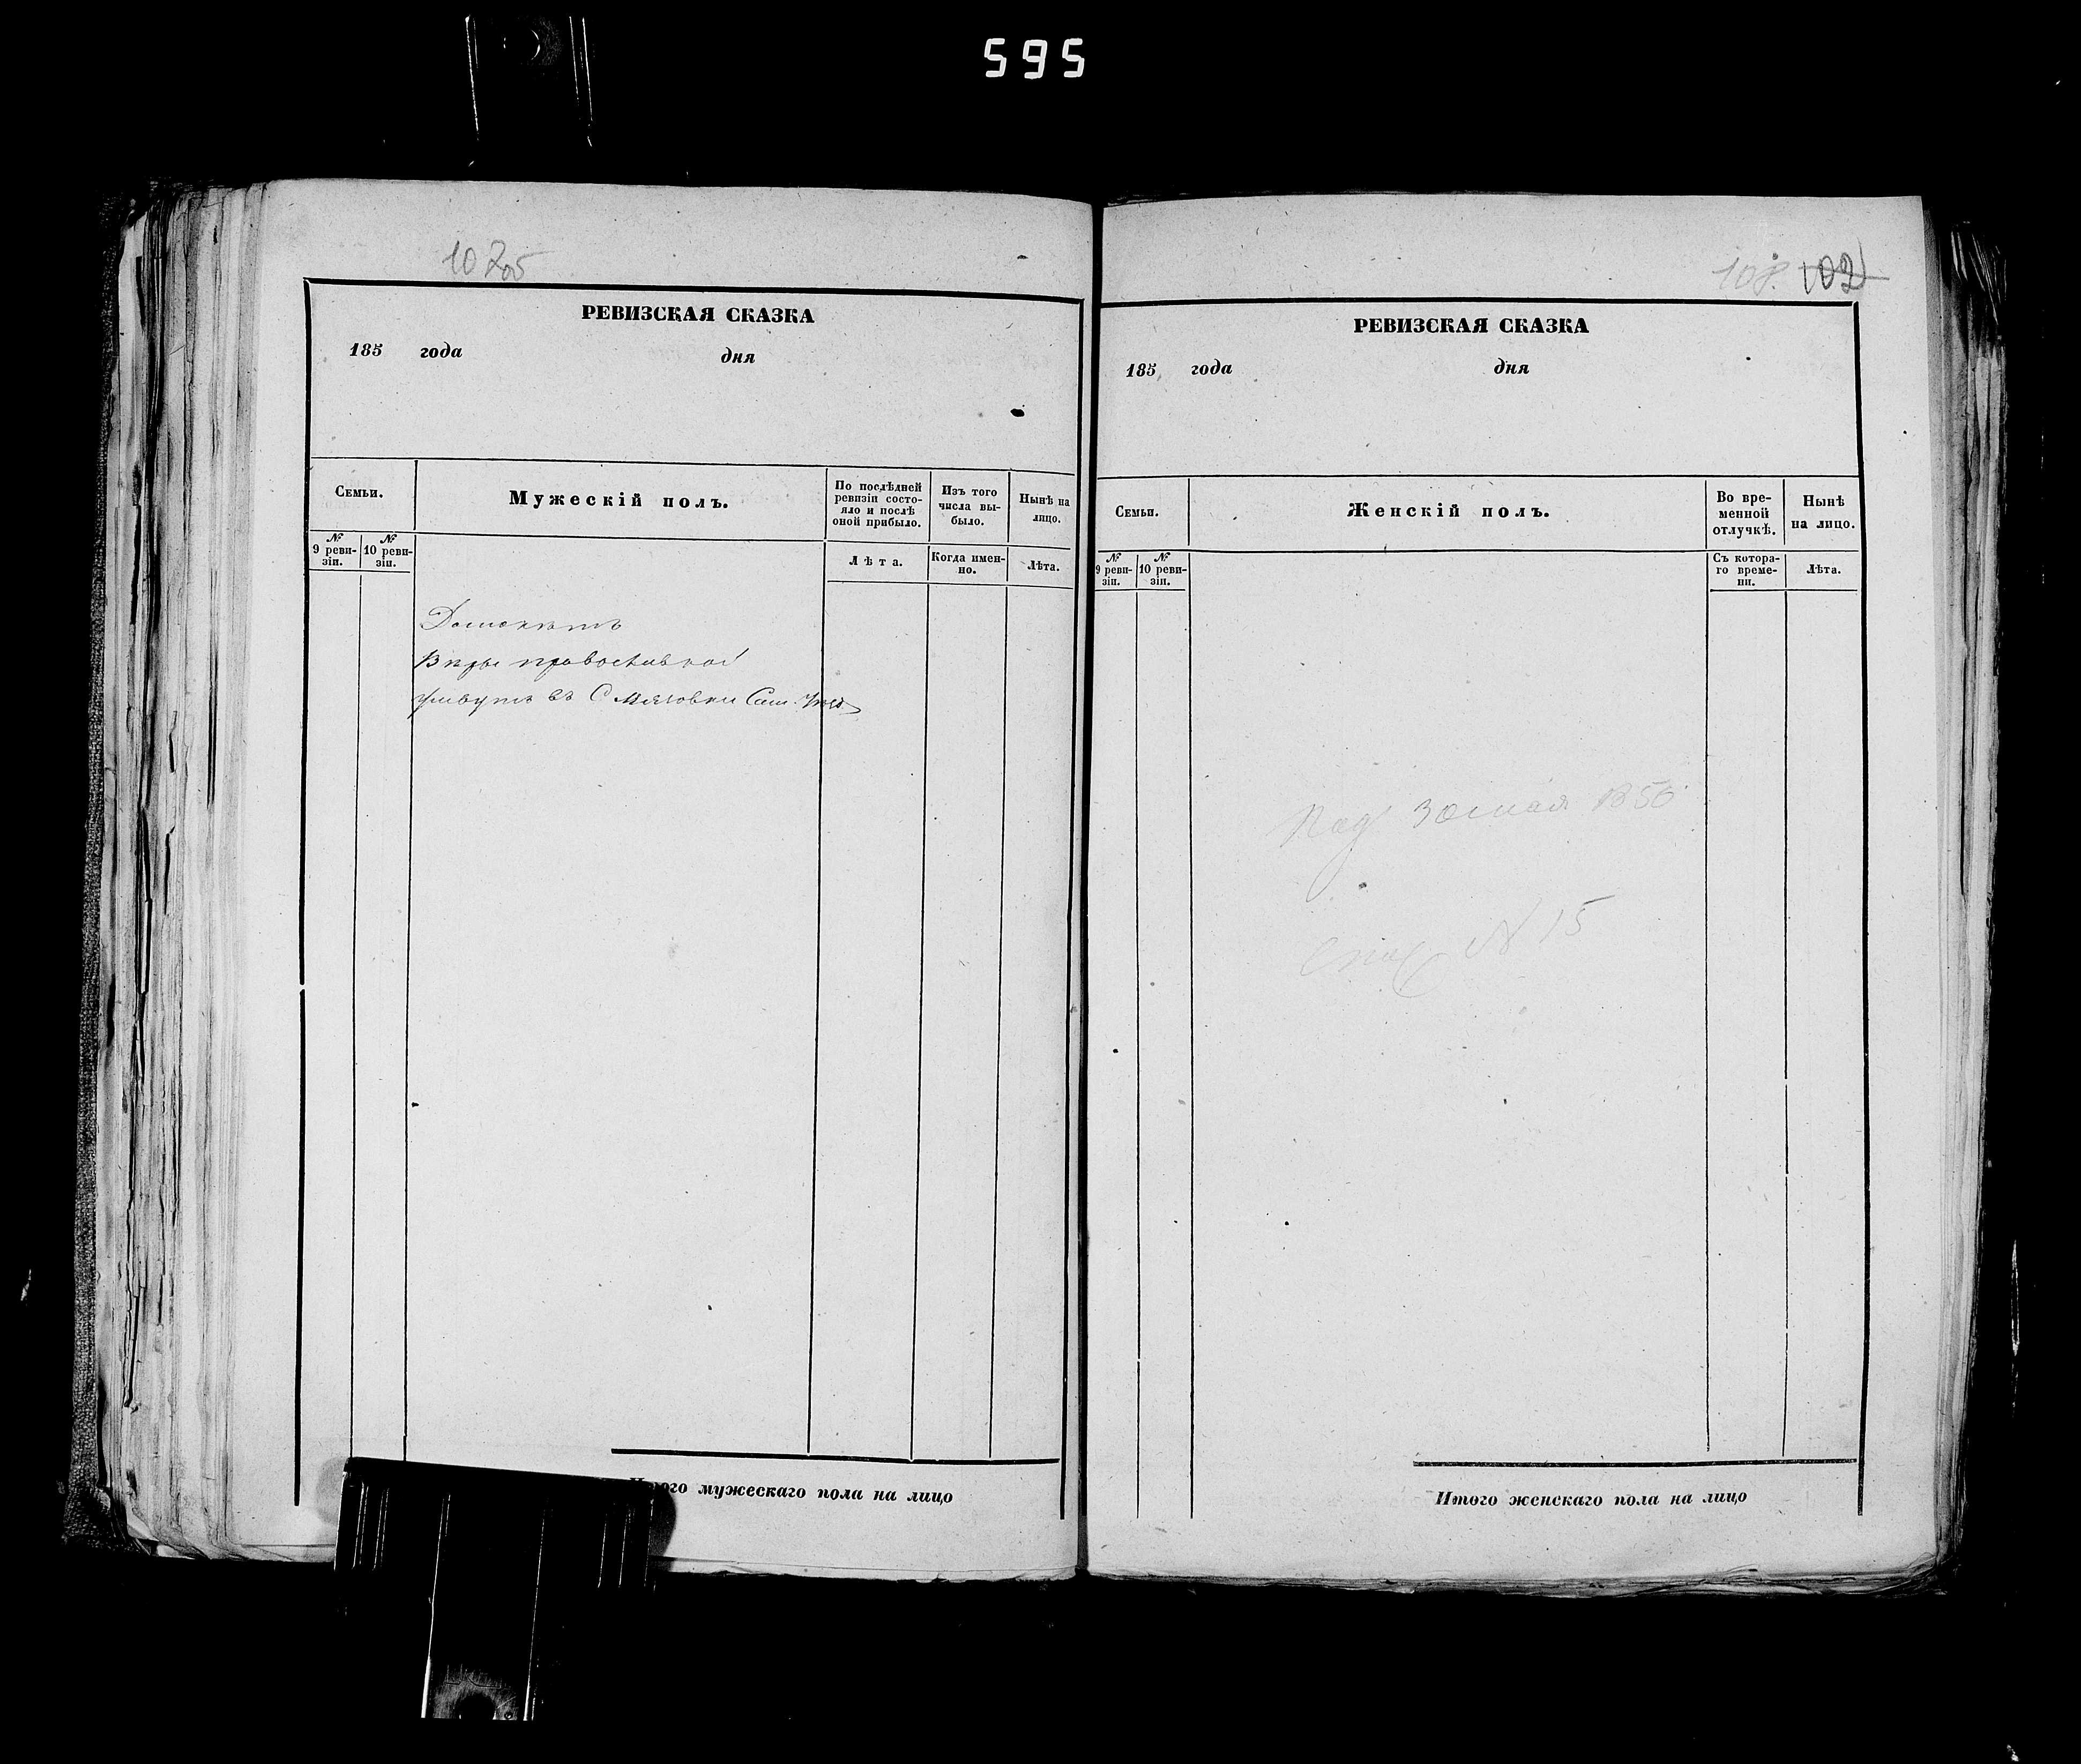 595
107об
РЕВИЗСКАЯ СКАЗКА
185 года дня
Семьи.
Мужескій полъ.
По послѣдней ревизіи состо-
яло и послѣ
оной прибыло.
Изъ того
числа вы-
было.
Нынѣ на
лицо.
№
9 реви-
зіи.
№
10 реви-
зіи.
Лѣта.
Когда имен-
но.
Лѣта.
Вѣры православной
живутъ въ С
Итого мужескаго пола на лицо
108. 102
РЕВИЗСКАЯ СКАЗКА
185 года дня
Семьи.
Женскій полъ.
Во вре-
менной
отлучкѣ.
Нынѣ
на лицо.
№
9 реви-
зіи.
№
10 реви-
зіи.
Съ котора-
го време-
ни.
Лѣта.
мая 1850
№ 15
Итого женскаго пола на лицо